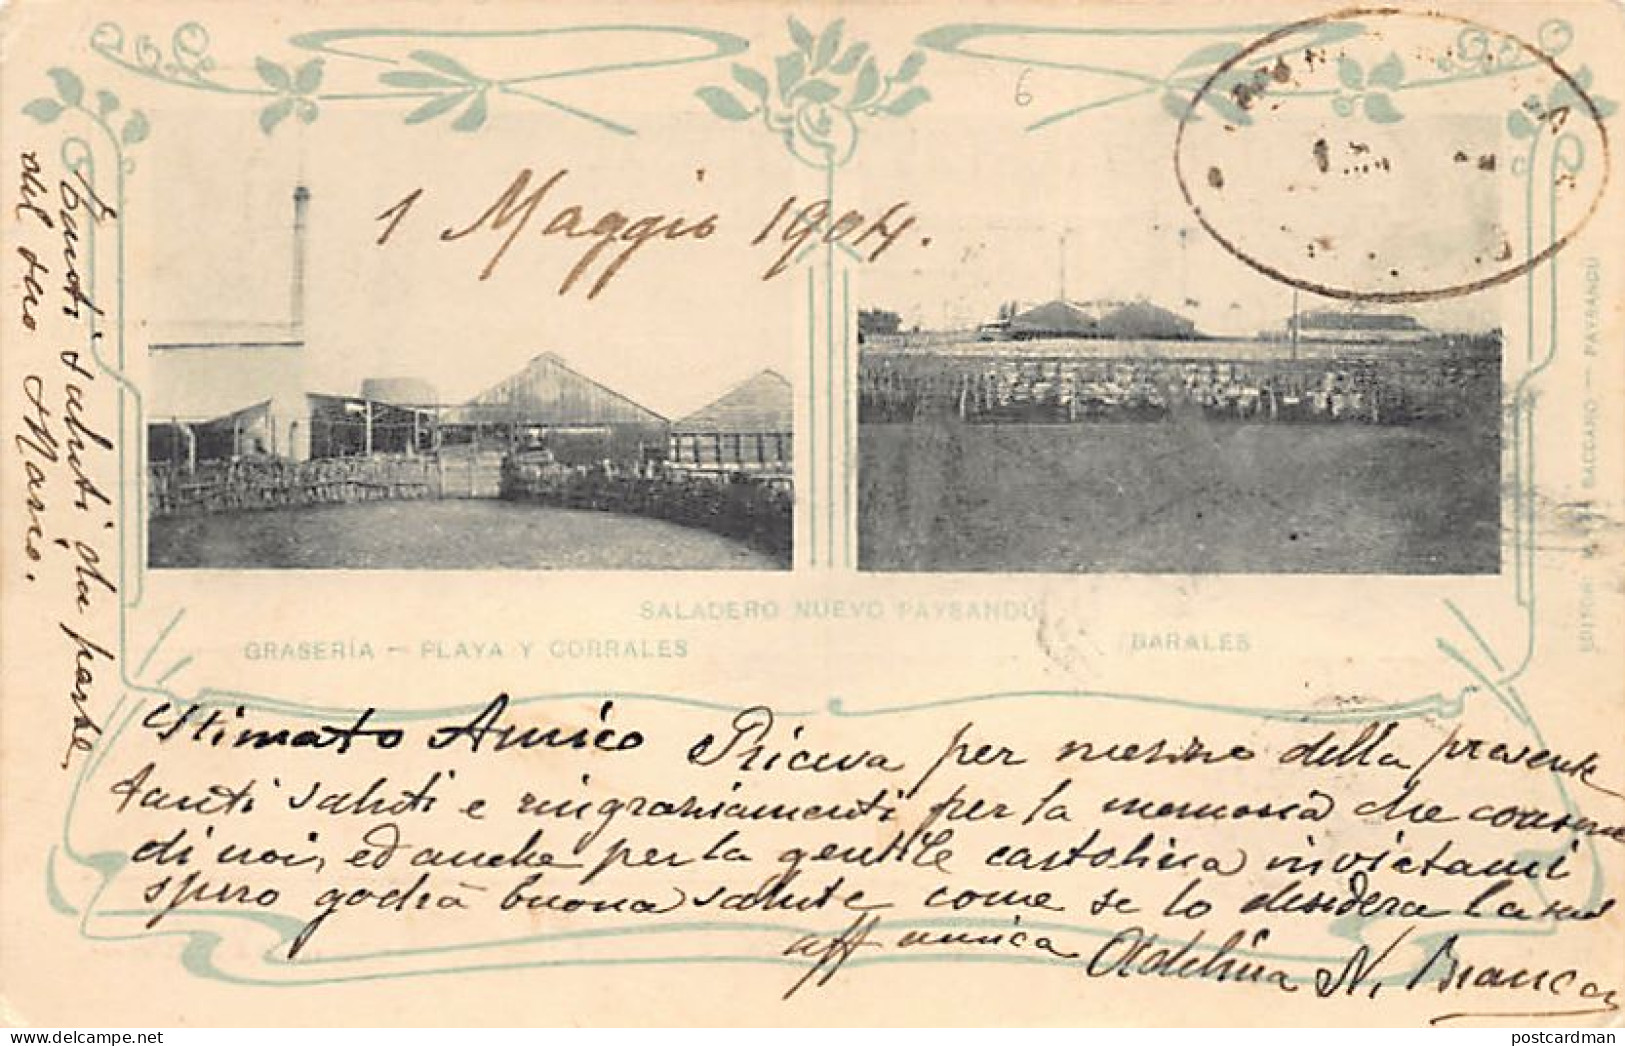 6
1 Maggio 1904.
SALADERO NUEVO PAYSANDÚ
GRASERÍA – PLAYA Y CORRALES
BARALES
Stimato Amico Riceva per mezzo della presente
tanti saluti e ringraziamenti per la memoria che conserva
di noi, ed anche per la gentile cartolina inviatami
spero godrà buona salute come se lo desidera la sua
aff amica Adelina N. Bianca
Tanti saluti da parte
del suo Mario.
EDITOR BACCARO – PAYSANDÚ
postcardman